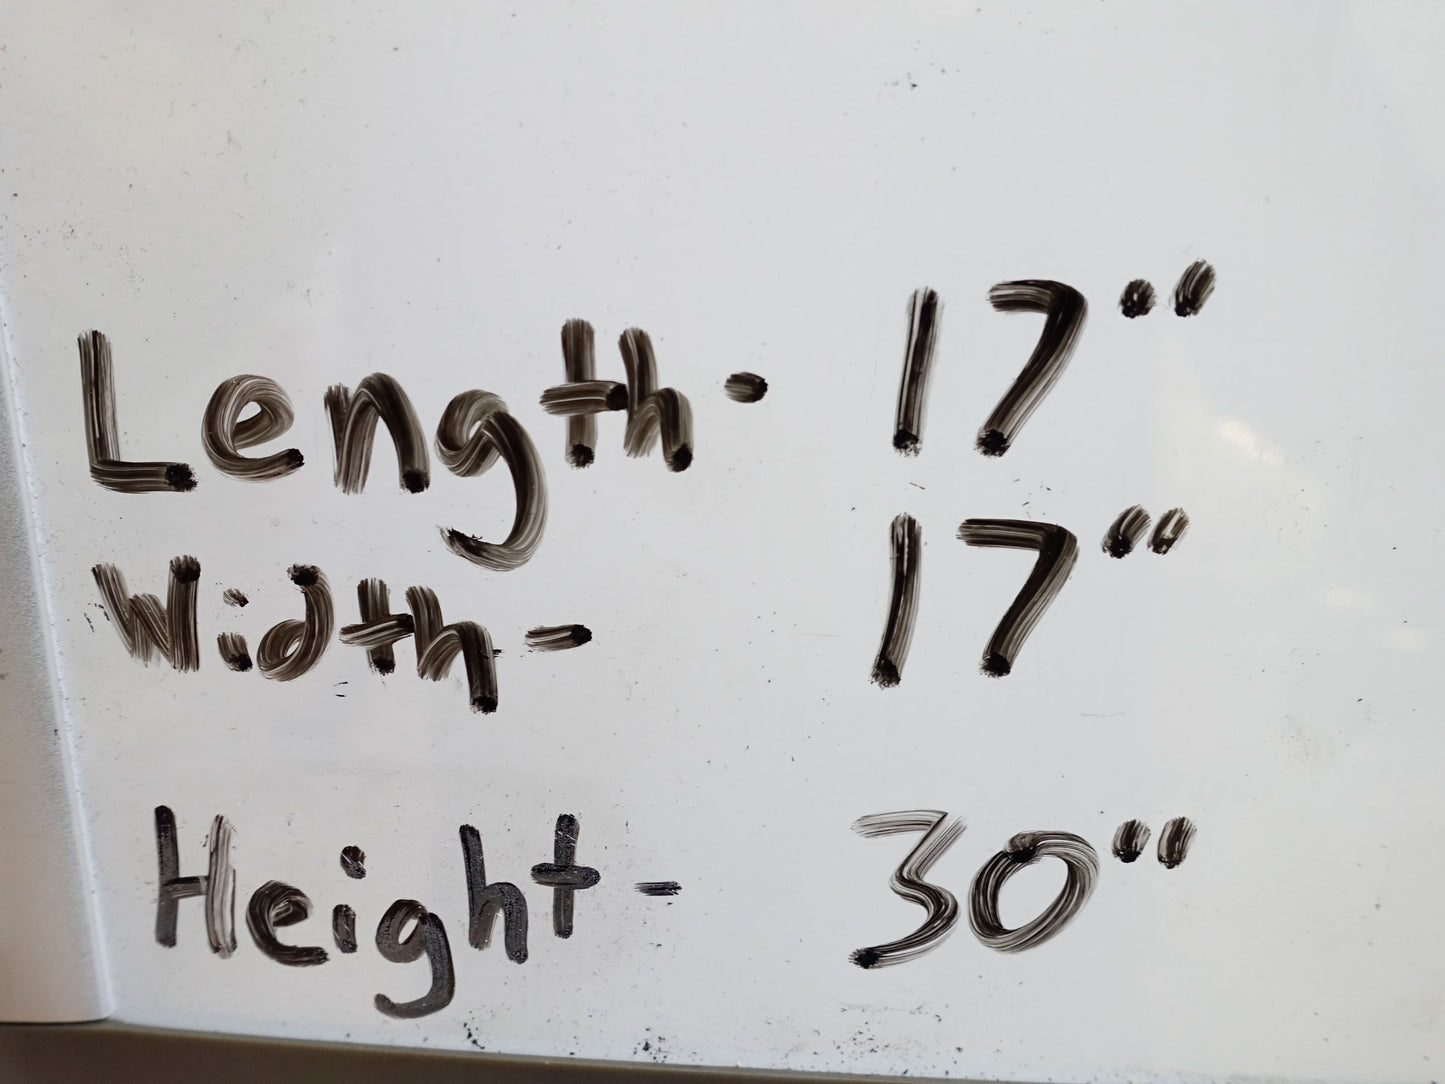 Length- 17"
Width- 17"
Height- 30"